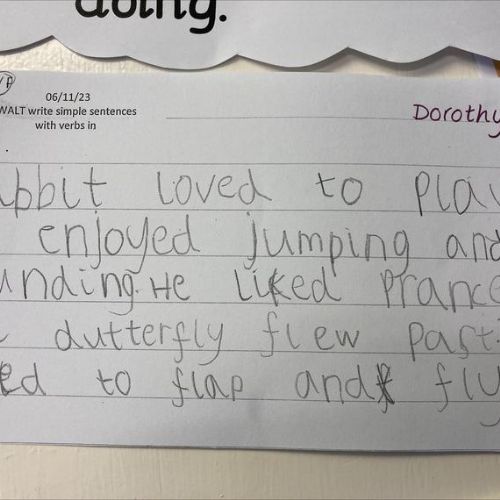 doing.
06/11/23
WALT write simple sentences
with verbs in
Dorothy
abbit loved to play
enjoyed jumping and
unding. He liked prance
dutterfly flew past.
ed to flap and fly